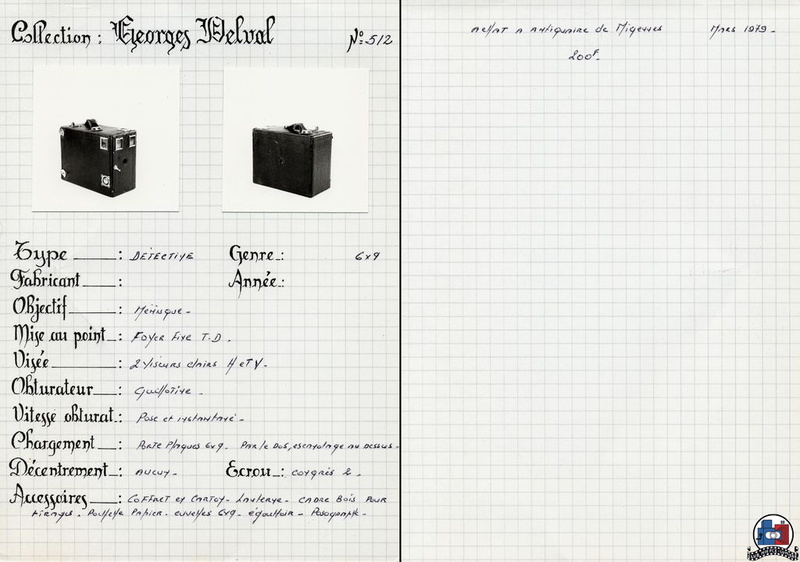 Collection : Georges Delval Nº 512
Type : DETECTIVE Genre : 6x9
Fabricant : Année :
Objectif : Ménisque -
Mise au point : Foyer Fixe T.D.
Visée : 2 Viseurs clairs H et V -
Obturateur : Guillotine -
Vitesse obturat : Pose et instantané -
Chargement : Porte Plaques 6x9 - Par le Dos, escamotage au dessus -
Décentrement : AUCUN - Ecrou : congrès 2 -
Accessoires : COFFRET EN CARTON - Lanterne - CADRE BOIS POUR
tirages - Papier - cuvettes 6x9 - égouttoir - Posographe -
ACHAT A Antiquaire de Migennes Mars 1979 -
200F.